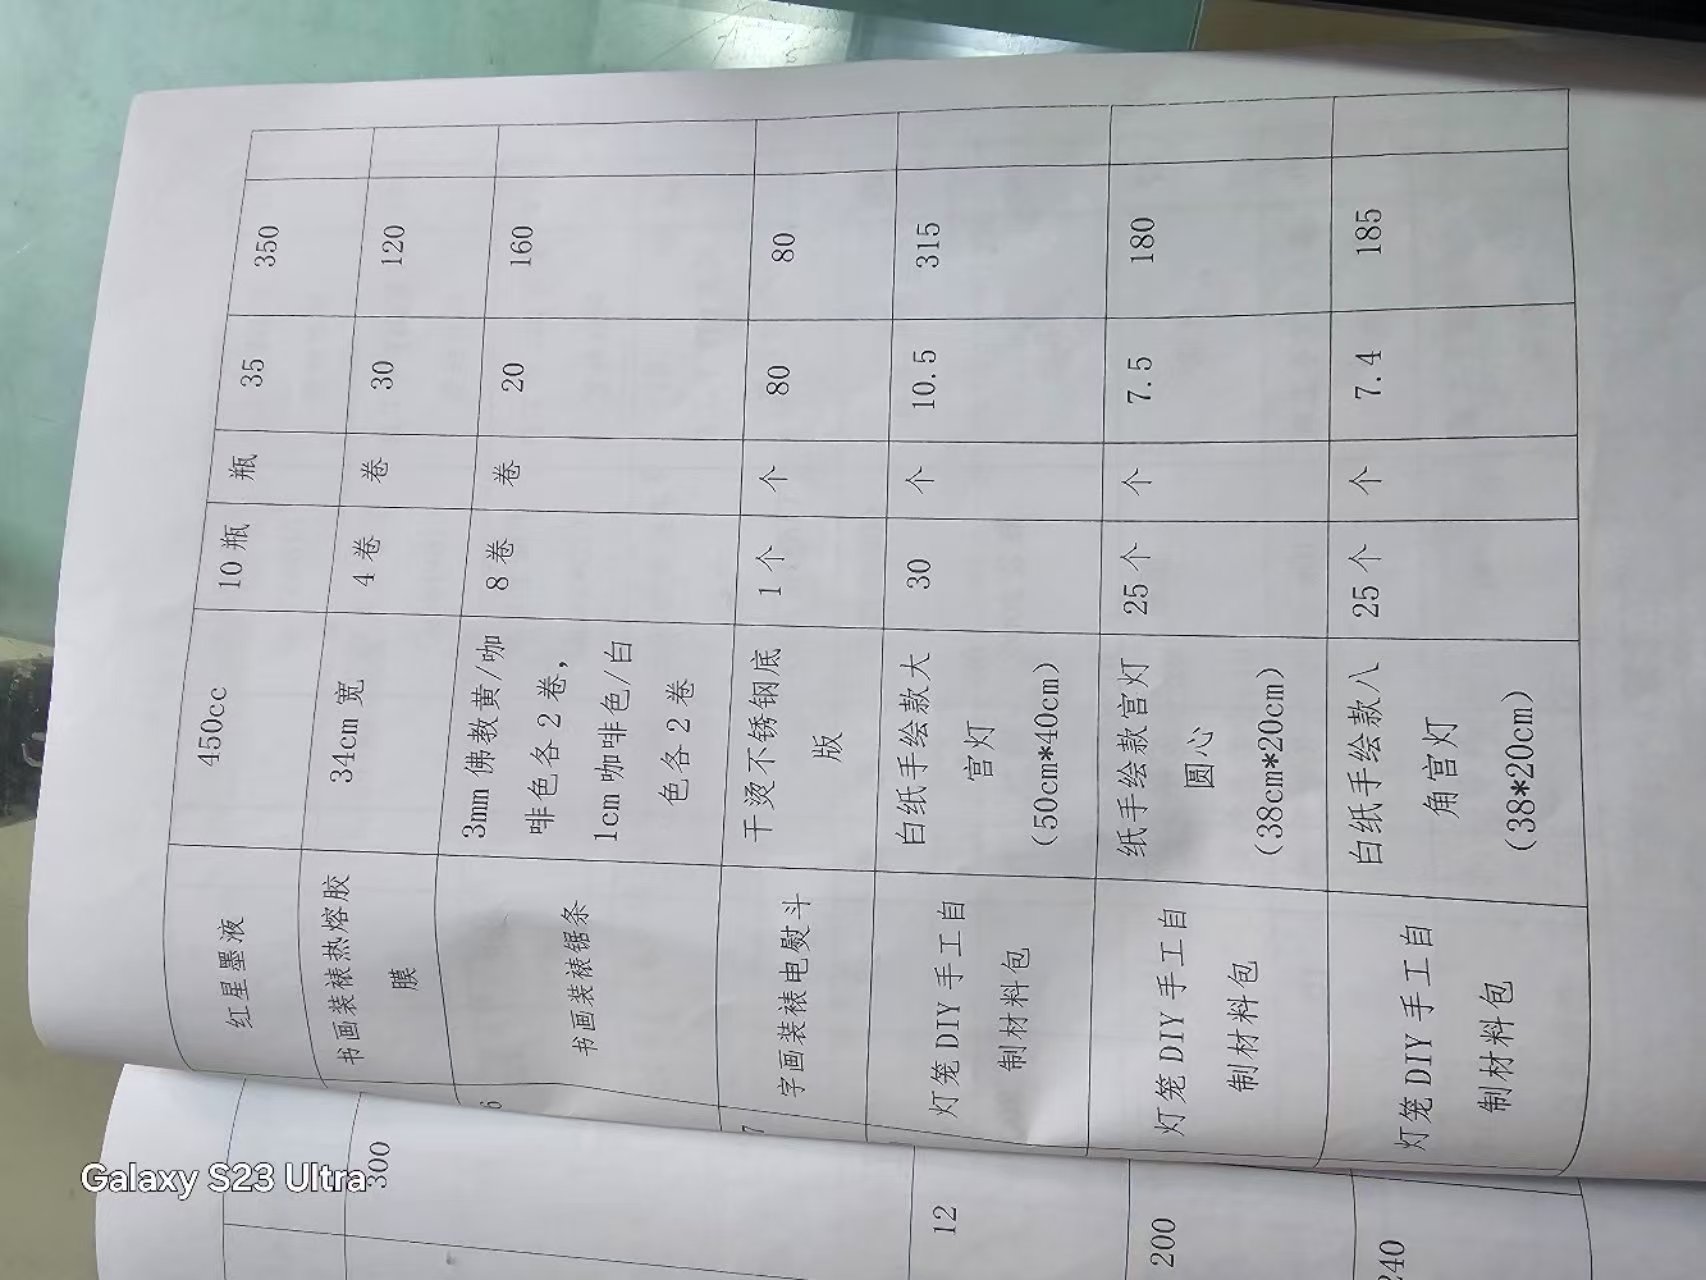 红星墨液
450cc
10瓶
瓶
35
350
书画装裱热熔胶
膜
34cm宽
4卷
卷
30
120
6
书画装裱锯条
3mm佛教黄/咖
啡色各2卷，
1cm咖啡色/白
色各2卷
8卷
卷
20
160
7
字画装裱电熨斗
干烫不锈钢底
版
1个
个
80
80
灯笼DIY手工自
制材料包
白纸手绘款大
宫灯
(50cm*40cm)
30
个
10.5
315
灯笼DIY手工自
制材料包
纸手绘款宫灯
圆心
(38cm*20cm)
25个
个
7.5
180
灯笼DIY手工自
制材料包
白纸手绘款八
角宫灯
(38*20cm)
25个
个
7.4
185
300
12
200
240
Galaxy S23 Ultra